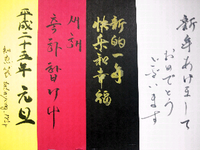 新年あけまして
おめでとう
ございます
新的一年
快乐和幸福
새해
축하합니다
平成二十三年 元旦